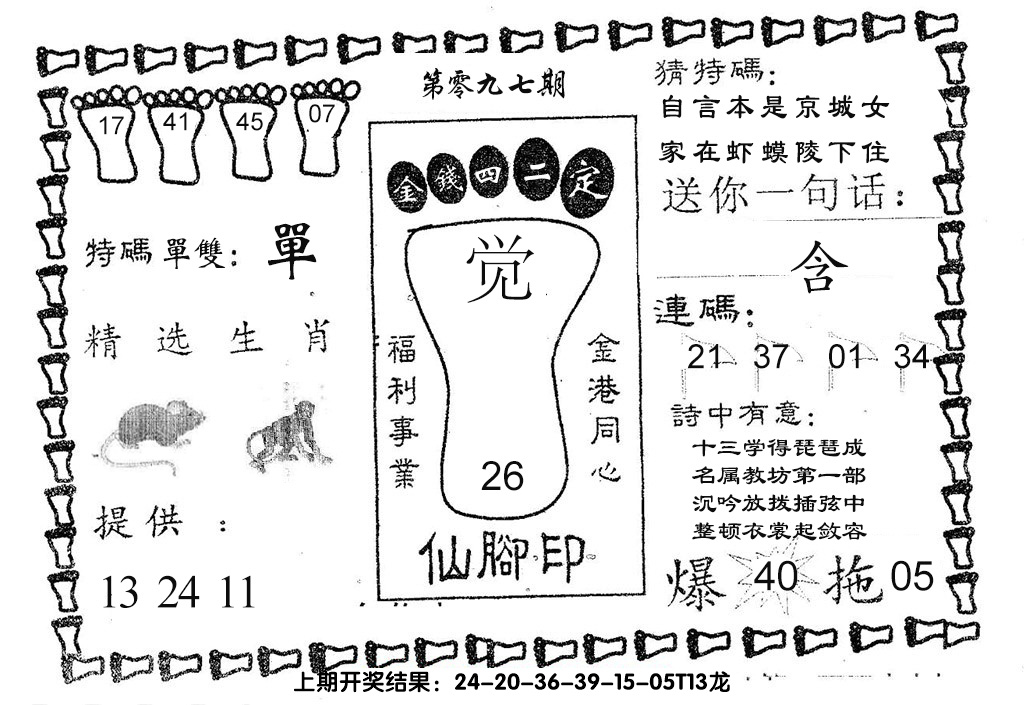 第零九七期
17 41 45 07
特碼單雙：單
精选生肖
提供：
13 24 11
金錢四二定
觉
福利事業
金港同心
26
仙腳印
猜特碼：
自言本是京城女
家在虾蟆陵下住
送你一句话：
含
連碼：
21 37 01 34
詩中有意：
十三学得琵琶成
名属教坊第一部
沉吟放拨插弦中
整顿衣裳起敛容
爆 40 拖 05
上期开奖结果：24-20-36-39-15-05T13龙